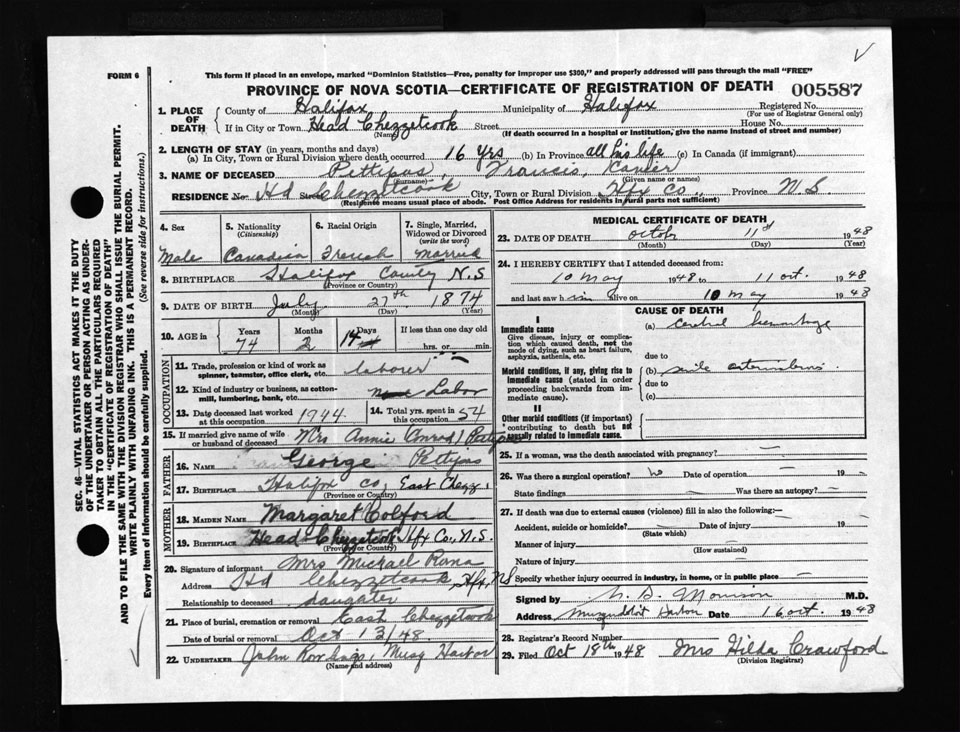 FORM 6
This form if placed in an envelope, marked "Dominion Statistics—Free, penalty for improper use $300," and properly addressed will pass through the mail "FREE"
PROVINCE OF NOVA SCOTIA—CERTIFICATE OF REGISTRATION OF DEATH 005587
1. PLACE OF DEATH County of Halifax Municipality of Halifax Registered No.
(For use of Registrar General only)
If in City or Town Head Chezzetcook Street House No.
(Name) (If death occurred in a hospital or institution, give the name instead of street and number)
2. LENGTH OF STAY (in years, months and days)
(a) In City, Town or Rural Division where death occurred 16 yrs (b) In Province all his life (c) In Canada (if immigrant)
3. NAME OF DECEASED Pettipas, Francis,
(Surname) (Given name or names)
RESIDENCE No. Hd Street Chezzetcook City, Town or Rural Division Hfx Co., Province N.S.
(Residence means usual place of abode. Post Office Address for residents in rural parts not sufficient)
SEC. 46—VITAL STATISTICS ACT MAKES IT THE DUTY
OF THE UNDERTAKER OR PERSON ACTING AS UNDER-
TAKER TO OBTAIN ALL THE PARTICULARS REQUIRED
IN THE "CERTIFICATE OF REGISTRATION OF DEATH"
AND TO FILE THE SAME WITH THE DIVISION REGISTRAR WHO SHALL ISSUE THE BURIAL PERMIT.
WRITE PLAINLY WITH UNFADING INK. THIS IS A PERMANENT RECORD.
Every item of information should be carefully supplied. (See reverse side for instructions.)
4. Sex Male
5. Nationality (Citizenship) Canadian
6. Racial Origin French
7. Single, Married, Widowed or Divorced (write the word) Married
8. BIRTHPLACE Halifax County N.S
(Province or Country)
9. DATE OF BIRTH July 27th 1874
(Month) (Day) (Year)
10. AGE in Years 74 Months 2 Days 14 If less than one day old hrs. or min.
OCCUPATION
11. Trade, profession or kind of work as spinner, teamster, office clerk, etc. labourer
12. Kind of industry or business, as cotton-mill, lumbering, bank, etc. Labor
13. Date deceased last worked at this occupation 1944 14. Total yrs. spent in this occupation 54
15. If married give name of wife or husband of deceased Mrs Annie (Conrad) Pettipas
FATHER
16. NAME George Pettipas
17. BIRTHPLACE Halifax Co, East Chezz.
(Province or Country)
MOTHER
18. MAIDEN NAME Margaret Colford
19. BIRTHPLACE Head Chezzetcook Hfx Co., N.S.
(Province or Country)
20. Signature of informant Mrs Michael Roma
Address Hd Chezzetcook, Hfx, NS
Relationship to deceased daugater
21. Place of burial, cremation or removal East Chezzetcook
Date of burial or removal Oct 13/48.
22. UNDERTAKER John Rowlings, Musq Harbor
(Name and address)
MEDICAL CERTIFICATE OF DEATH
23. DATE OF DEATH October 11th 1948
(Month) (Day) (Year)
24. I HEREBY CERTIFY that I attended deceased from:
10 May 1948 to 11 oct. 1948
and last saw him alive on 10 May 1948
CAUSE OF DEATH
I
Immediate cause
Give disease, injury or complication which caused death, not the mode of dying, such as heart failure, asphyxia, asthenia, etc.
(a) Cerebral hemorrhage
due to
Morbid conditions, if any, giving rise to immediate cause (stated in order proceeding backwards from immediate cause).
(b) senile
due to
(c)
II
Other morbid conditions (if important) contributing to death but not causally related to immediate cause.
25. If a woman, was the death associated with pregnancy? —
26. Was there a surgical operation? No Date of operation — 19 —
State findings — Was there an autopsy? —
27. If death was due to external causes (violence) fill in also the following:—
Accident, suicide or homicide? Date of injury 19
(State which)
Manner of injury
(How sustained)
Nature of injury
Specify whether injury occurred in industry, in home, or in public place —
Signed by M.D.
Address Musquodoboit Harbour Date 16 oct. 1948
28. Registrar's Record Number
29. Filed Oct 18th 1948 Mrs Hilda Crawford
(Division Registrar)